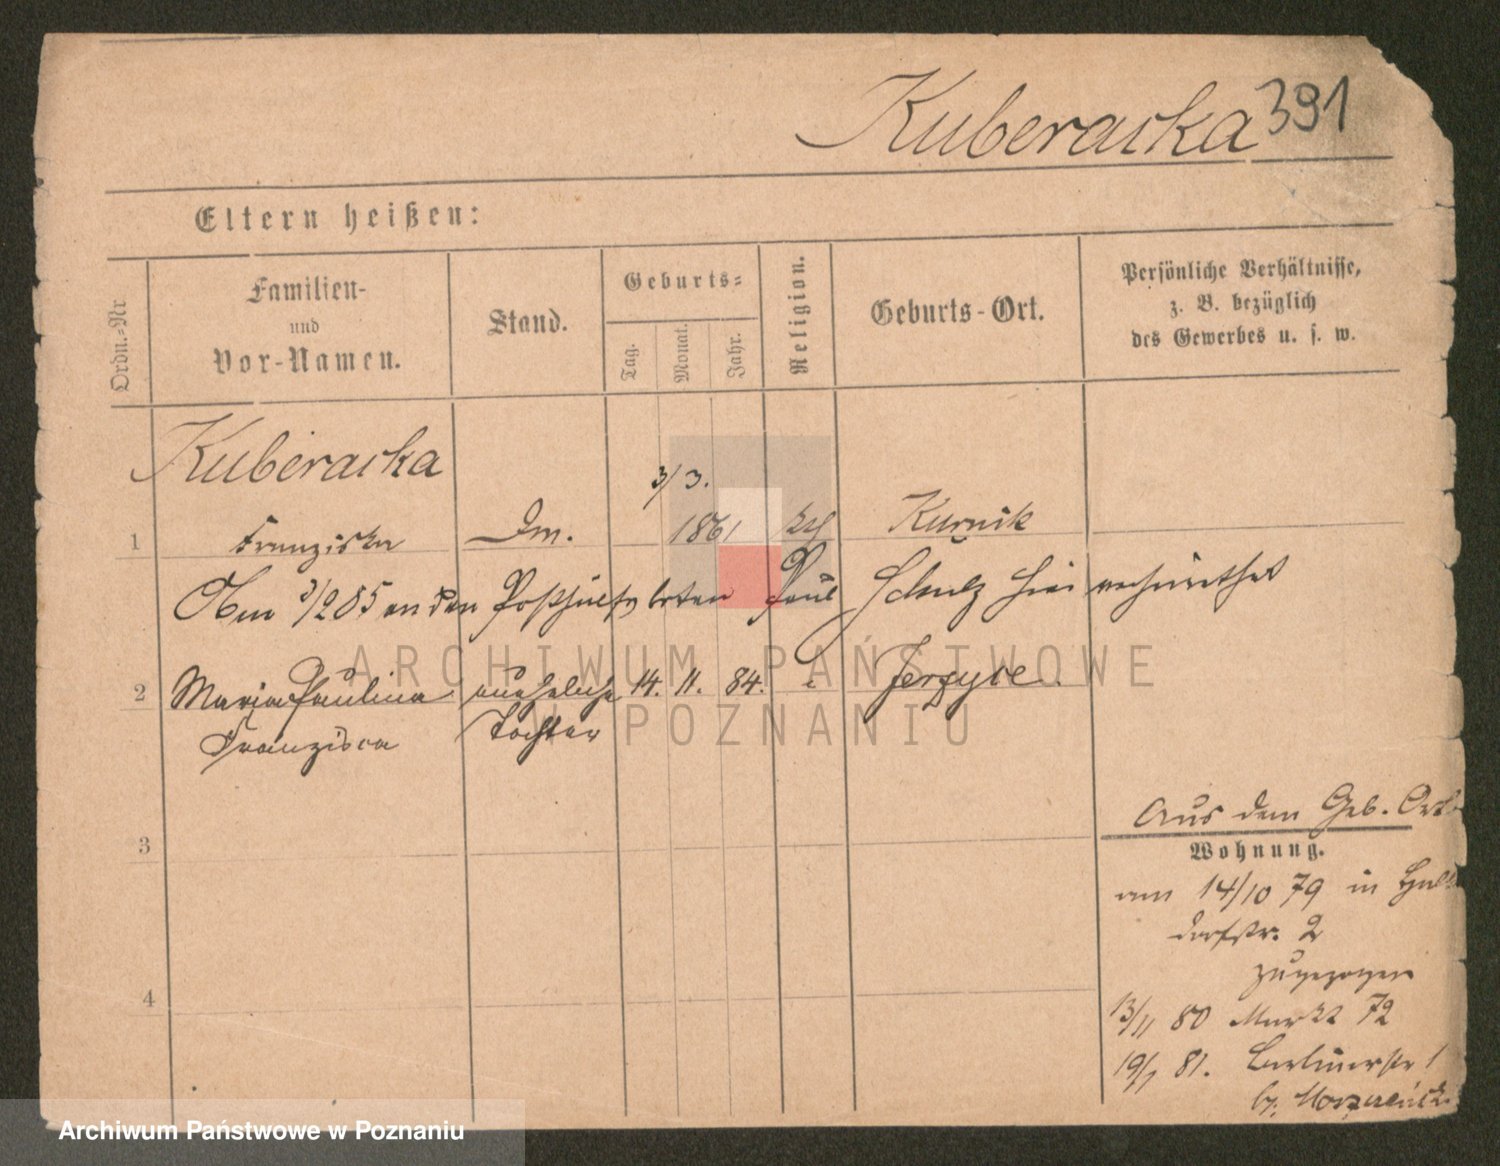 Kuberacka 391
Eltern heißen:
Ordn.=Nr
Familien-
und
Vor-Namen.
Stand.
Geburts=
Tag.
Monat.
Jahr.
Religion.
Geburts-Ort.
Persönliche Verhältnisse,
z. B. bezüglich
des Gewerbes u. s. w.
Kuberacka
3/3.
1 Franziska Dm. 1861 kth Kurnik
Am 3/2 85 an den Paul Schulz hier verheirathet
2 Maria Paulina uneheliche 14. 11. 84. " Jerzyce.
Franzisca Tochter
ARCHIWUM PAŃSTWOWE
W POZNANIU
3
Aus dem Geb. Ort
Wohnung.
am 14/10 79 in
dorfstr. 2
zugezogen
4
13/11 80 Markt 72
19/1 81. Berlinerstr 1
b.
Archiwum Państwowe w Poznaniu